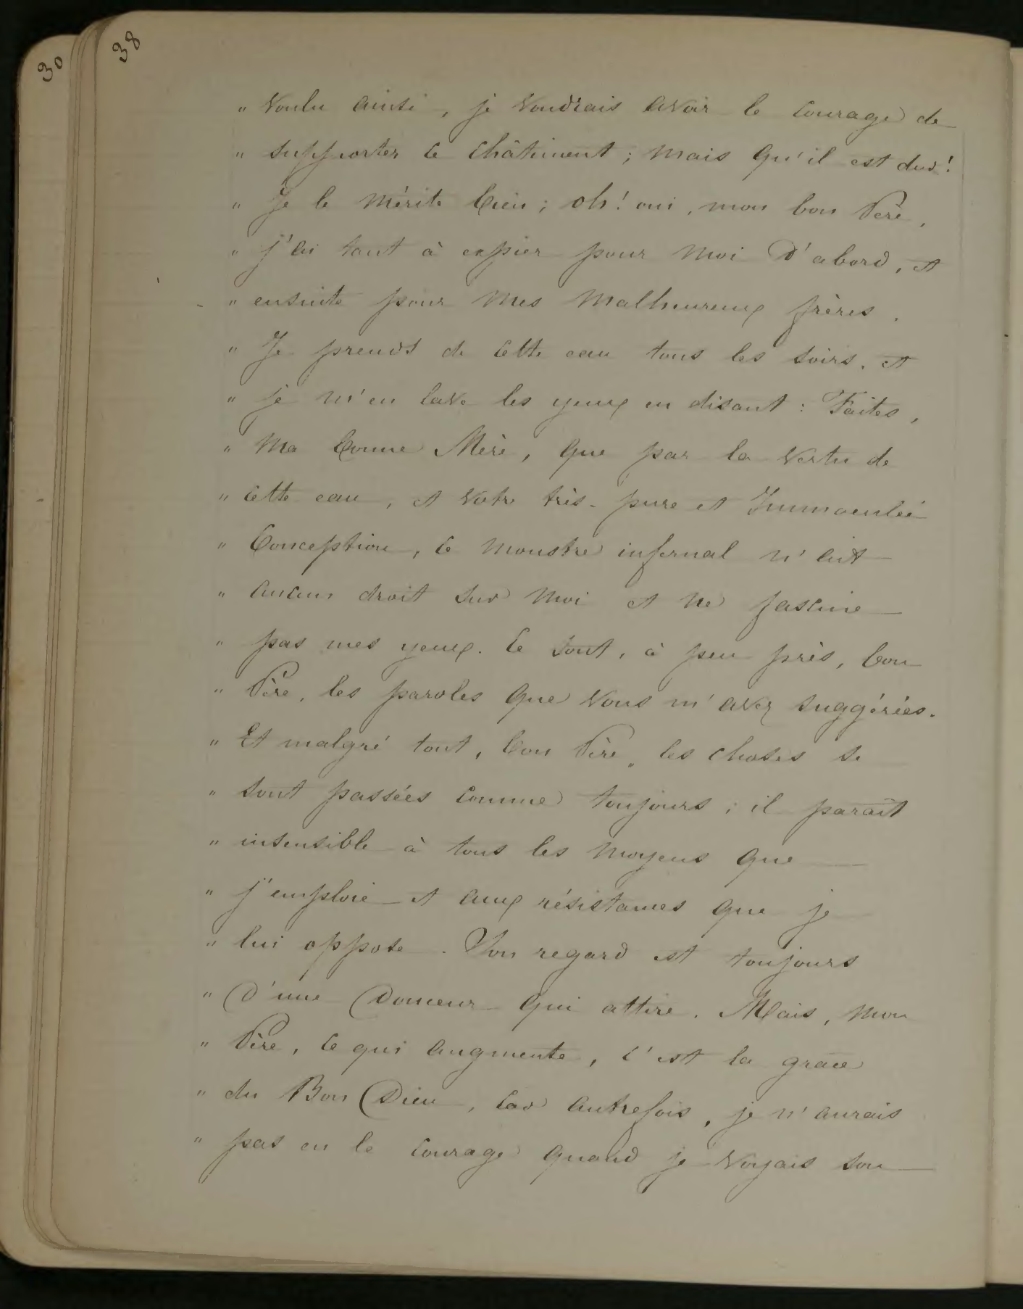 30
38
" voulu ainsi, je voudrais avoir le courage de
" supporter ce châtiment ; mais qu'il est dur !
" Je le mérite bien ; oh ! oui, mon bon Père,
" j'ai tant à expier pour moi d'abord, et
" ensuite pour mes malheureux frères.
" Je prends de cette eau tous les soirs, et
" je m'en lave les yeux en disant : Faites,
" ma bonne Mère, que par la vertu de
" cette eau, et votre très-pure et Immaculée
" Conception, ce monstre infernal n'ait
" aucun droit sur moi et ne fascine
" pas mes yeux. Ce sont, à peu près, bon
" Père, les paroles que vous m'avez suggérées.
" Et malgré tout, bon Père, les choses se
" sont passées comme toujours ; il paraît
" insensible à tous les moyens que
" j'emploie et aux résistances que je
" lui oppose. Son regard est toujours
" d'une douceur qui attire. Mais, mon
" Père, ce qui augmente, c'est la grâce
" du Bon Dieu, car autrefois, je n'aurais
" pas eu le courage quand je voyais son